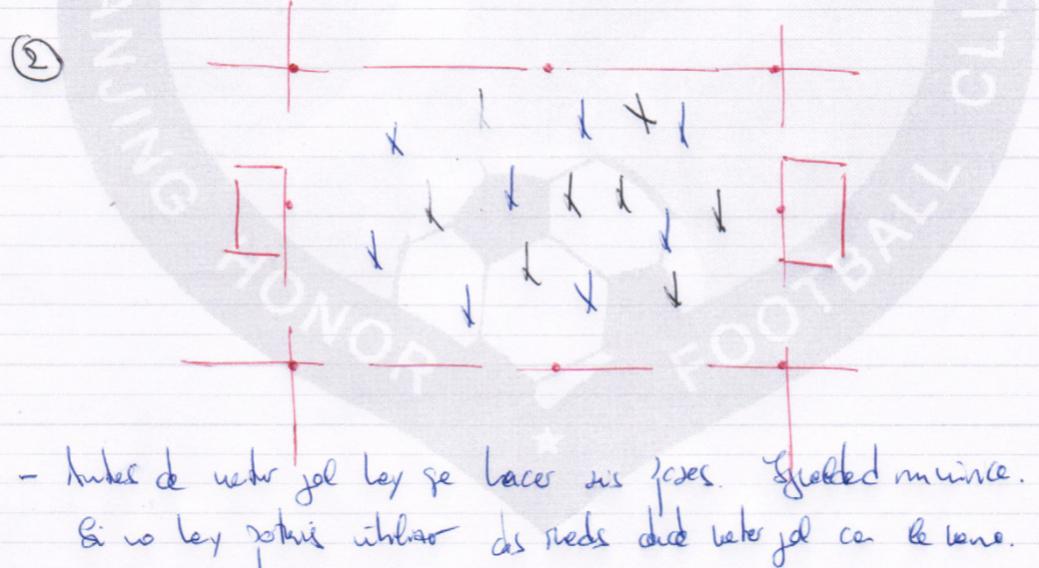 2
ANJING HONOR FOOTBALL
- Antes de meter gol hay qe hacer seis pases. Igualdad numérica.
Si no hay utilizar dos donde meter gol con la mano.